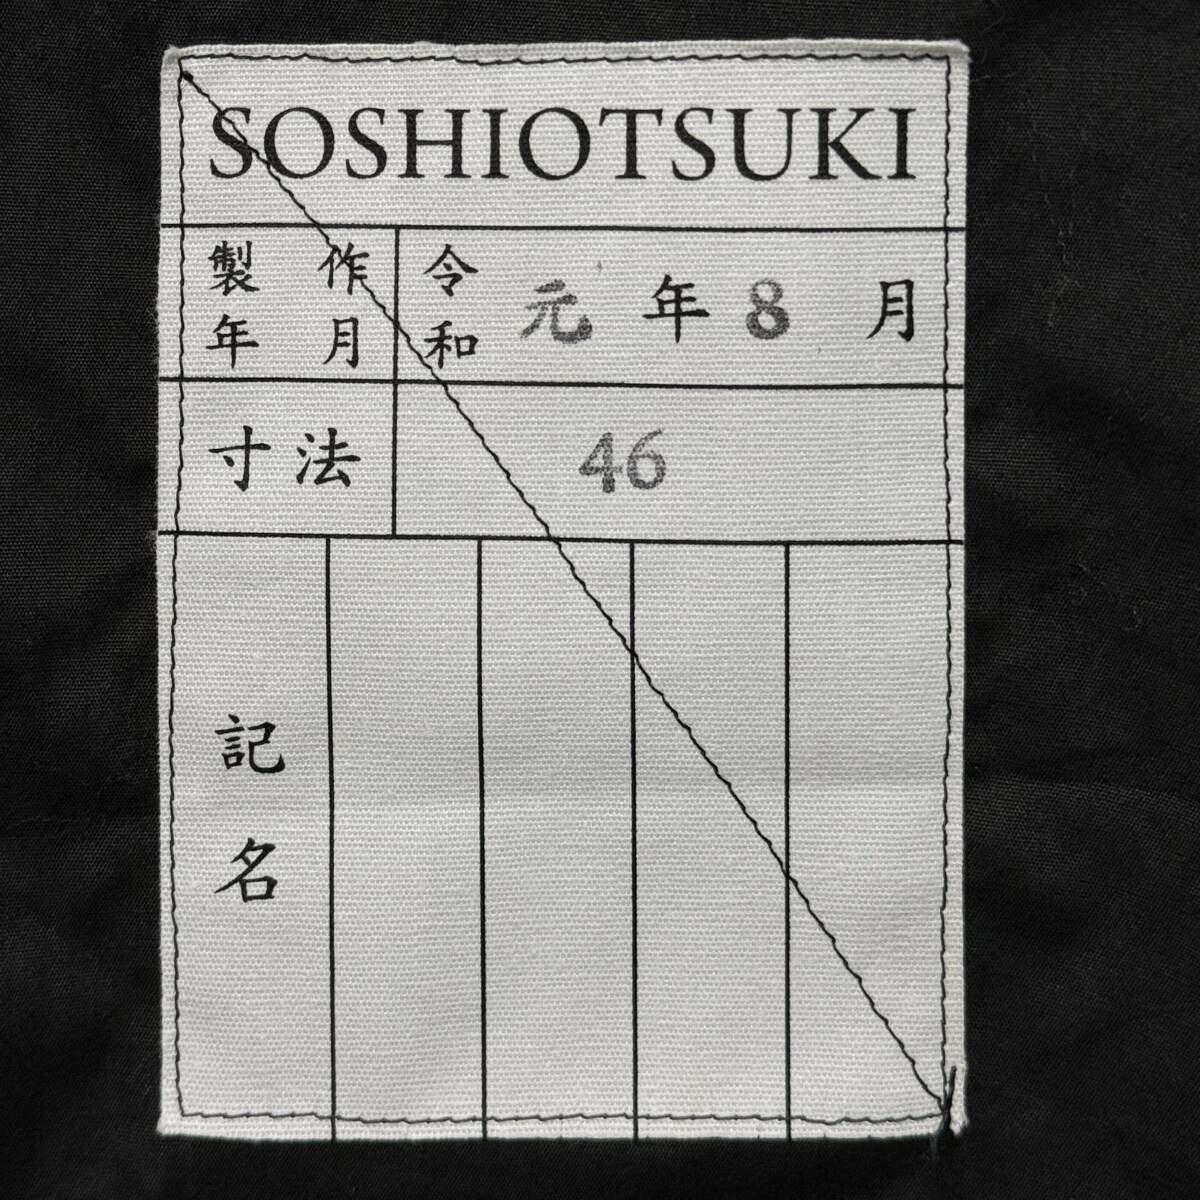 SOSHIOTSUKI
製作年月 令和 元 年 8 月
寸法 46
記名